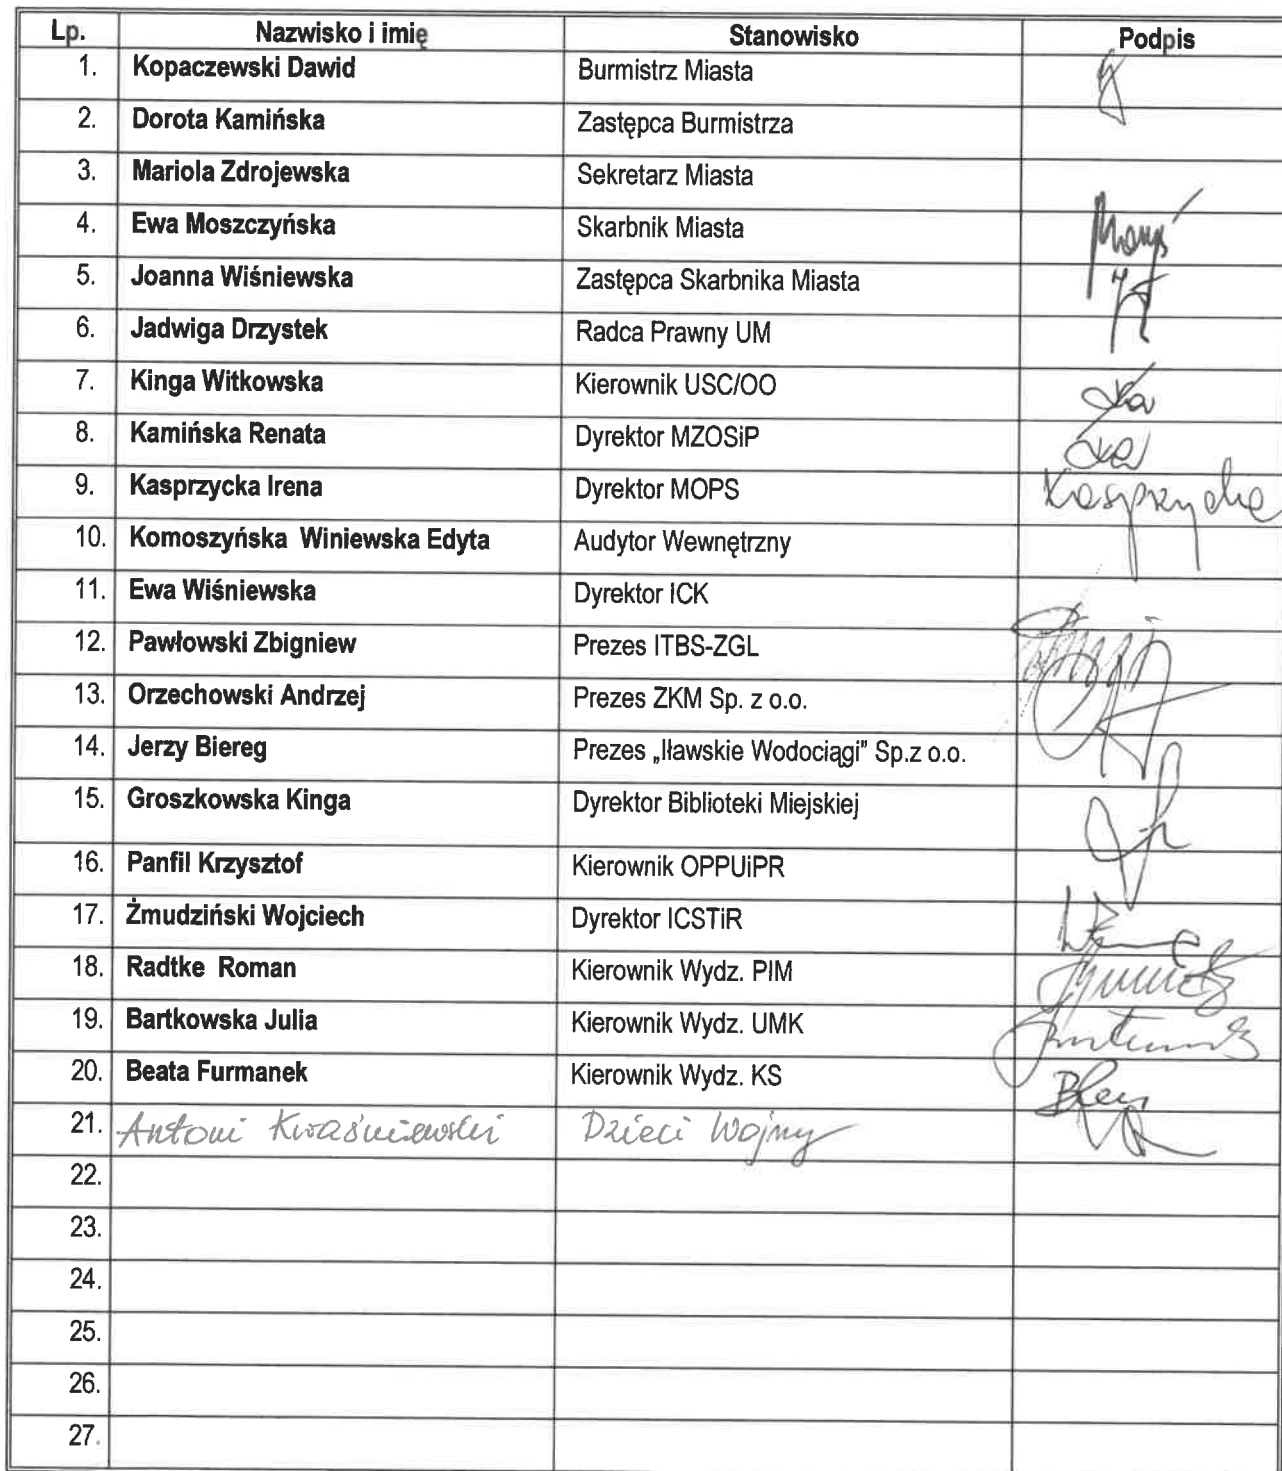 Lp. Nazwisko i imię Stanowisko Podpis
1. Kopaczewski Dawid Burmistrz Miasta
2. Dorota Kamińska Zastępca Burmistrza
3. Mariola Zdrojewska Sekretarz Miasta
4. Ewa Moszczyńska Skarbnik Miasta
5. Joanna Wiśniewska Zastępca Skarbnika Miasta
6. Jadwiga Drzystek Radca Prawny UM
7. Kinga Witkowska Kierownik USC/OO
8. Kamińska Renata Dyrektor MZOSiP
9. Kasprzycka Irena Dyrektor MOPS Kasprzycka
10. Komoszyńska Winiewska Edyta Audytor Wewnętrzny
11. Ewa Wiśniewska Dyrektor ICK
12. Pawłowski Zbigniew Prezes ITBS-ZGL
13. Orzechowski Andrzej Prezes ZKM Sp. z o.o.
14. Jerzy Biereg Prezes „Iławskie Wodociągi” Sp.z o.o.
15. Groszkowska Kinga Dyrektor Biblioteki Miejskiej
16. Panfil Krzysztof Kierownik OPPUiPR
17. Żmudziński Wojciech Dyrektor ICSTiR
18. Radtke Roman Kierownik Wydz. PIM
19. Bartkowska Julia Kierownik Wydz. UMK
20. Beata Furmanek Kierownik Wydz. KS
21. Antoni Kwaśniewski Dzieci Wojny
22.
23.
24.
25.
26.
27.